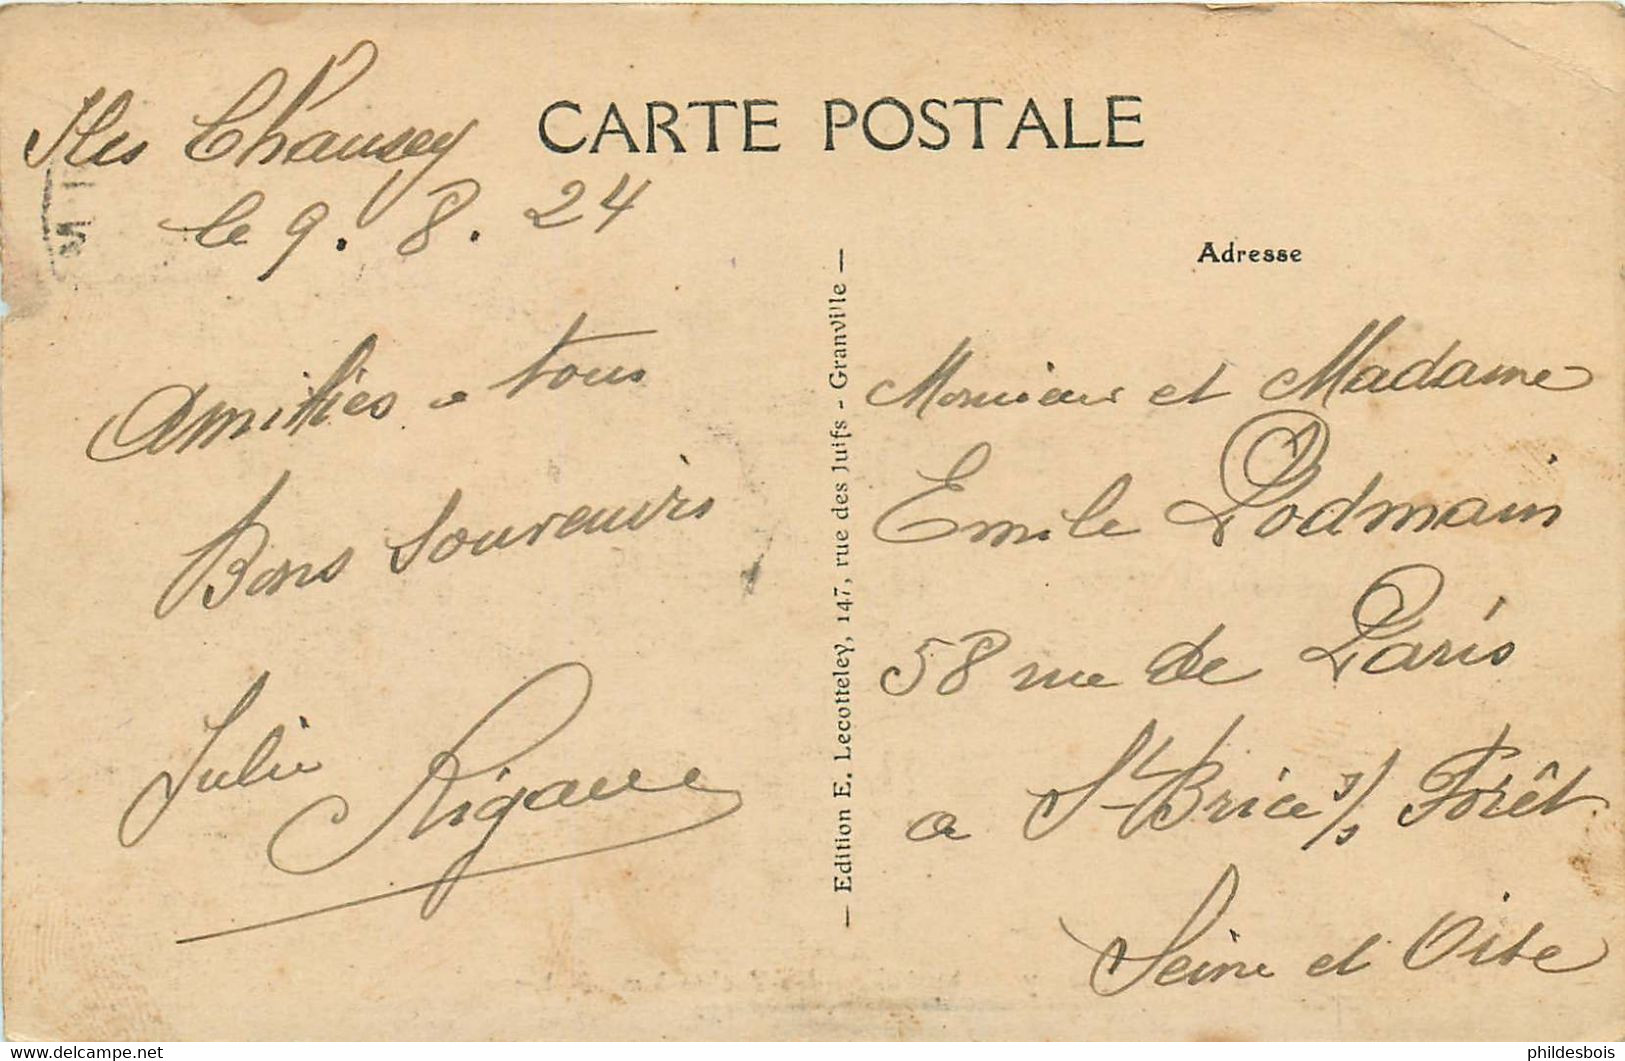 CARTE POSTALE
Iles Chausey
le 9.8.24
Amitiés a tous
Bons souvenirs
Julie
— Edition E. Lecotteley, 147, rue des Juifs - Granville —
Adresse
Monsieur et Madame
Emile Podmain
58 rue de Paris
a St Brice s/s Forêt
Seine et Oise
delcampe.net
phildesbois